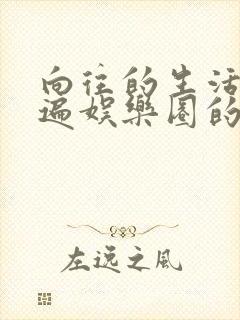 向往的生活
遍娱乐圈的
左逸之风